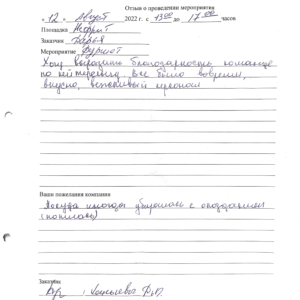 Отзыв о проведении мероприятия
« 12 » Август 2022 г. с 13 00 до 17 00 часов
Площадка
Заказчик Дарья
Мероприятие Фуршет
Хочу выразить благодарность команде
по кейтерингу. Все было вовремя,
вкусно, вежливый персонал
Ваши пожелания компании
Посуда иногда убиралась с опозданием
Заказчик